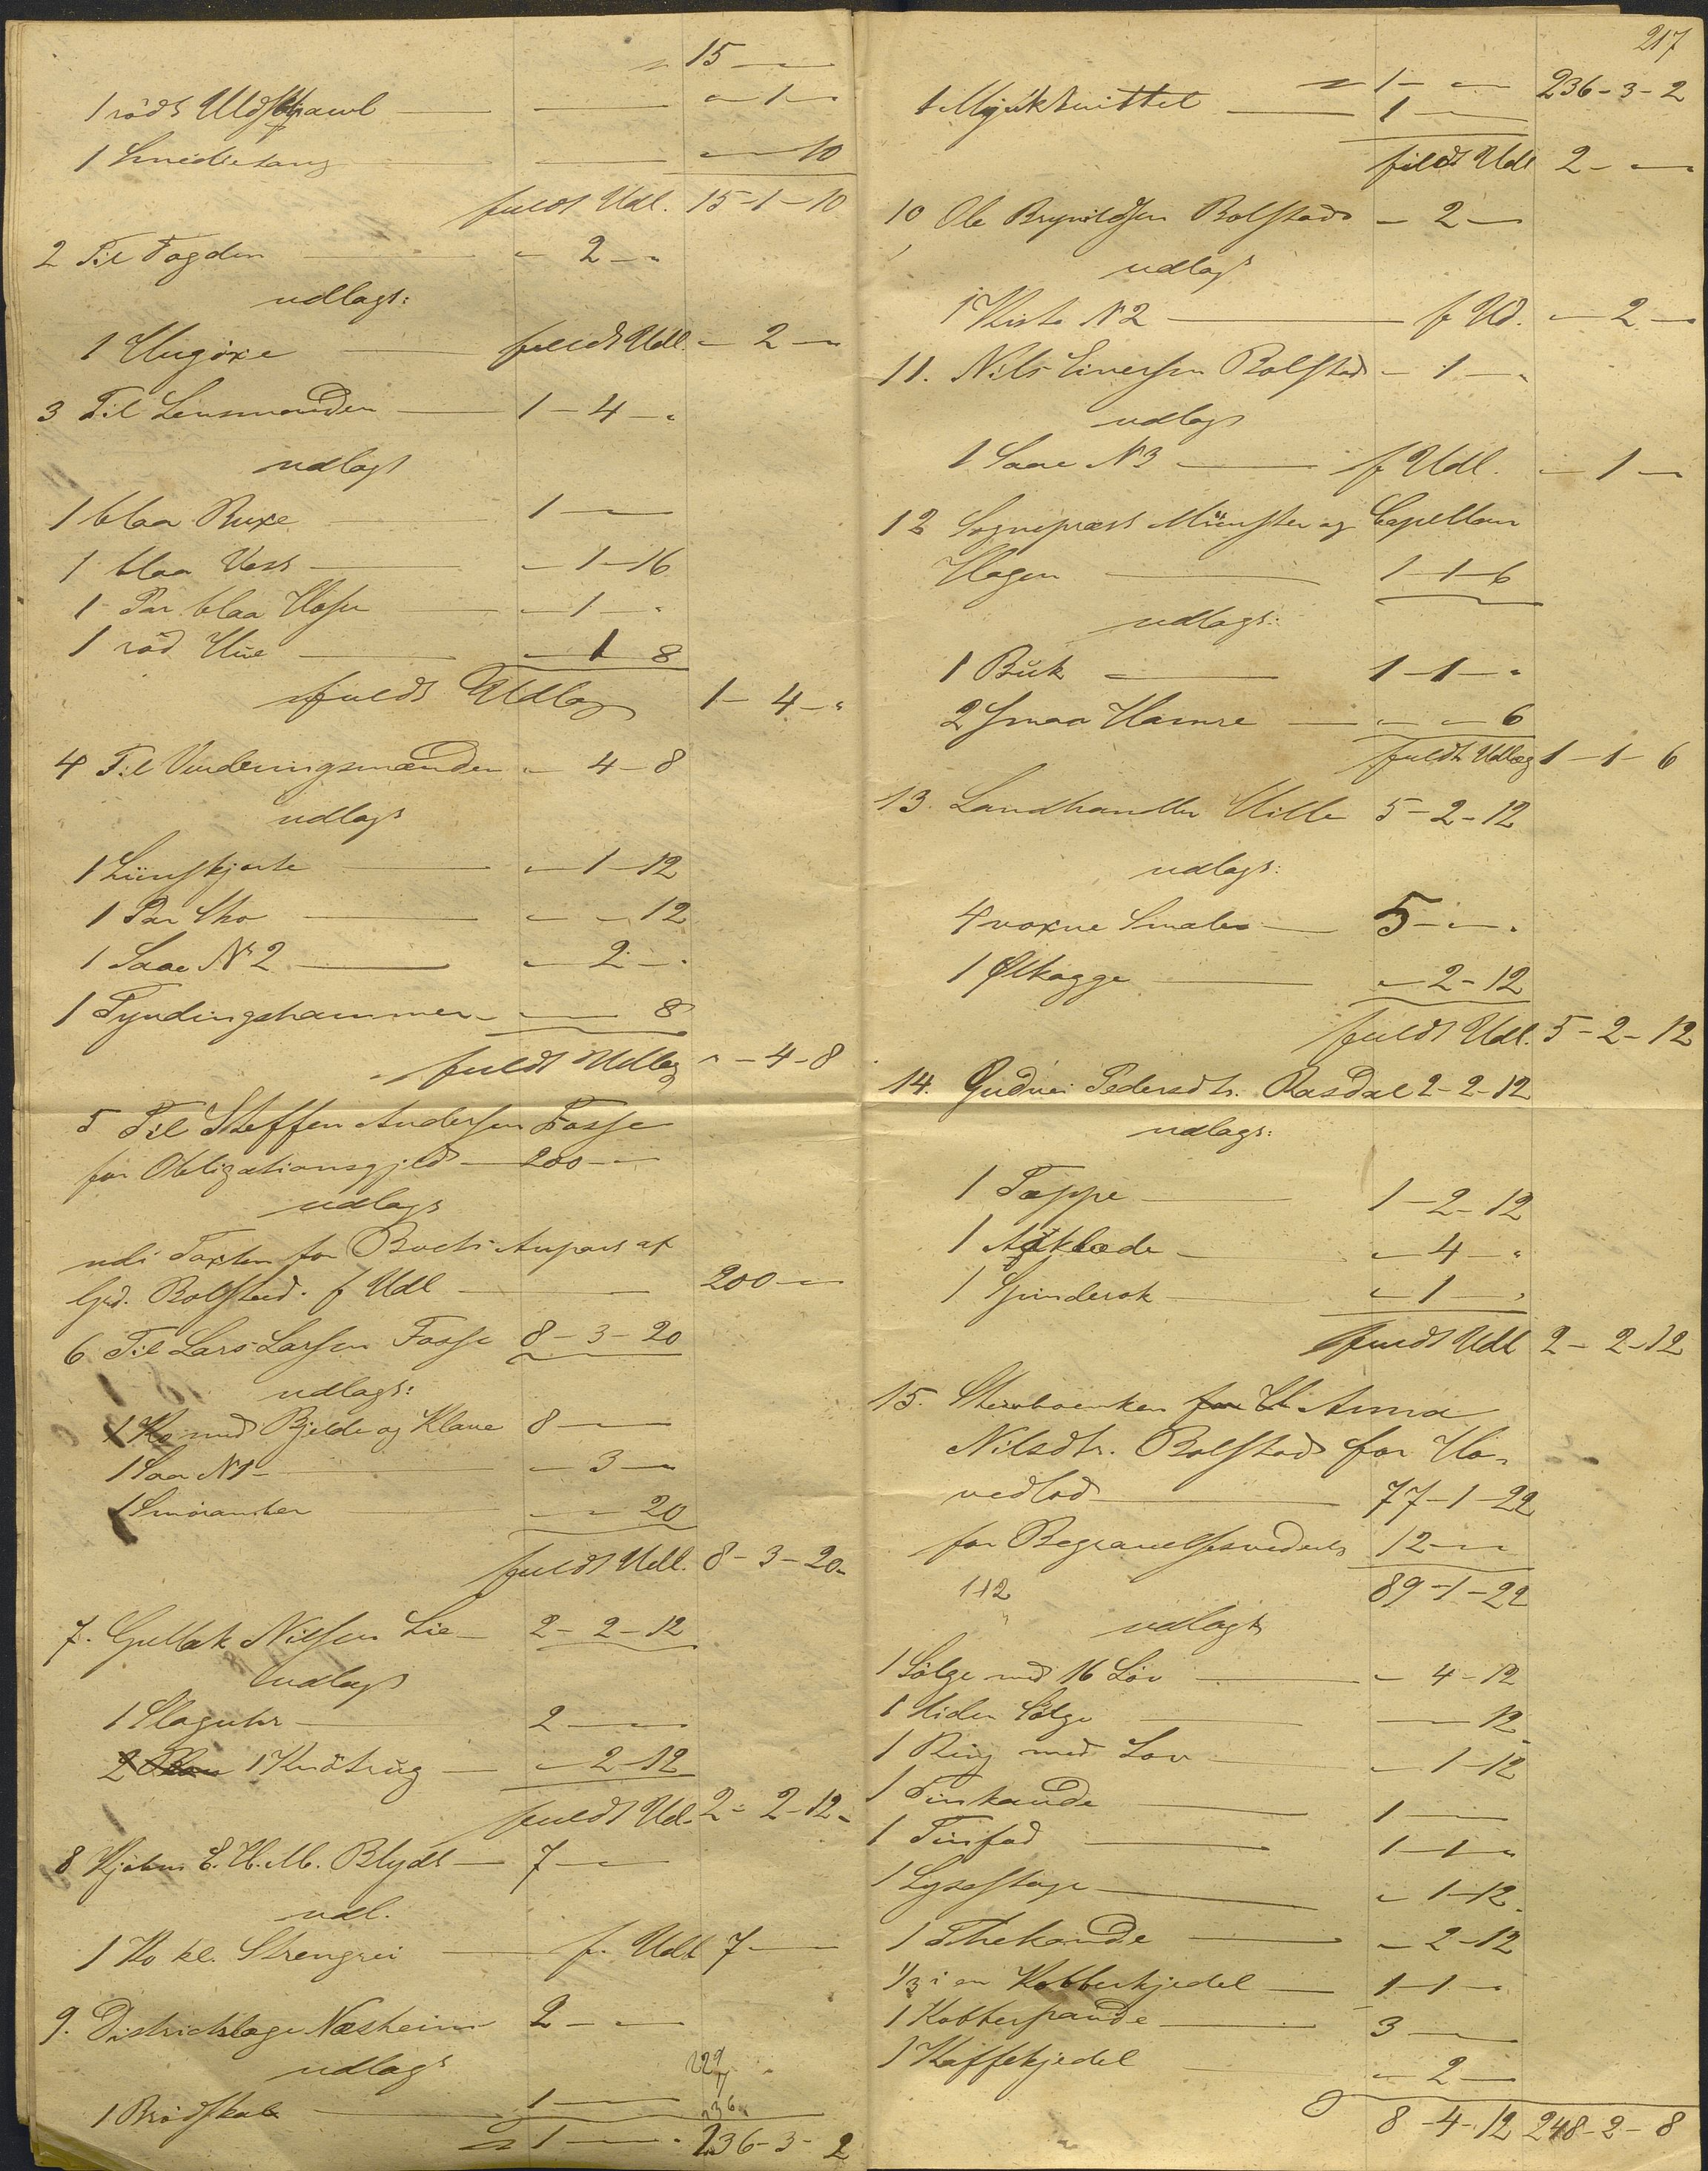 " 15 - "
1 rödt Uldskjawl - - " - 1 - "
1 Smedietang - - " - " - 10
fuldt Udl. 15 - 1 - 10
2 Til Fogden - " - 2 - "
udlagt:
1 Hugöxe - fuldt Udl. - 2 - "
3 Til Lensmanden - 1 - 4 - "
udlagt
1 blaa Buxe - 1 - "
1 blaa Vest - " - 1 - 16
1 Par blaa Hoser - " - 1 - "
1 röd Hue - " - 1 - 8
fuldt Udlæg 1 - 4 - "
4 Til Vurderingsmænden " - 4 - 8
udlagt
1 Linskjorte - " - 1 - 12
1 Par Sko - " - " - 12
1 Saae N 2 - " - 2 - "
1 Tyndingshammer - " - " - 8
fuldt Udlæg " - 4 - 8
5 Til Steffen Andersen Fosse
for Obligationsgjeld - 200 - "
udlagt
udi Taxten for Boets Anpart af
Grd. Bolstad. f Udl - 200 - "
6 Til Lars Larsen Fosse 8 - 3 - 20
udlagt:
1 Ko med Bjelde og Klave 8 - "
1 Saa N 1 - " - 3 - "
1 Smöranker " - " - 20
fuldt Udl. 8 - 3 - 20
7. Gulbak Nilsen Lie - 2 - 2 - 12
udlagt
1 Slaguhr - 2 - "
1 Knötrug - " - 2 - 12
fuldt Udl. 2 - 2 - 12
8 Kjöbm E. H. M. Blydt - 7 - "
udl.
1 Ko kl. Strengrei - f. Udl 7 - "
9. Districtslæge Næsheim 2 - "
udlagt
229
7
1 Brödskab - 1 - "
236
1 - " 236 - 3 - 2
217
" 1 - " 236 - 3 - 2
1 - 1 - "
fuldt Udl 2 - "
10 Ole Brynildsen Bolstad - 2 - "
udlagt
1 Kiste N 2 - f Ud. - 2 - "
11. Nils Eiversen Bolstad - 1 - "
udlagt
1 Saae N 3 - f Udl. - 1 - "
12 Sognepræst Münster og Capellan
Hagen - 1 - 1 - 6
udlagt:
1 Buk - 1 - 1 - "
2 smaa Hamre - " - " - 6
fuldt Udlæg 1 - 1 - 6
13. Landhandler Hille 5 - 2 - 12
udlagt:
4 voxne Smaler - 5 - " - "
1 Ølkagge - " - 2 - 12
fuldt Udl. 5 - 2 - 12
14. Gudvei Pedersdtr. Rasdal 2 - 2 - 12
udlagt:
1 Tæppe - 1 - 2 - 12
1 Aaklæde - " - 4 - "
1 Spinderok - " - 1 - "
fuldt Udl 2 - 2 - 12
15. Sterboenken for Anna
Nilsdtr. Bolstad for Ho-
vedlod - 77 - 1 - 22
for Begravelsesvederl. 12 - "
112 89 - 1 - 22
udlagt
1 Sölge med 16 Löv - " - 4 - 12
1 liden Sölge - " - " - 12
1 Ring med Löv - " - 1 - 12
1 Tinkande - 1 - "
1 Tinfad - 1 - 1 - "
1 Lysestage - " - 1 - 12
1 Thekande - " - 2 - 12
1/3 i en Kobberkjedel - 1 - 1 - "
1 Kobberpande - 3 - "
1 Kaffekjedel " - 2 - "
8 - 4 - 12 248 - 2 - 8